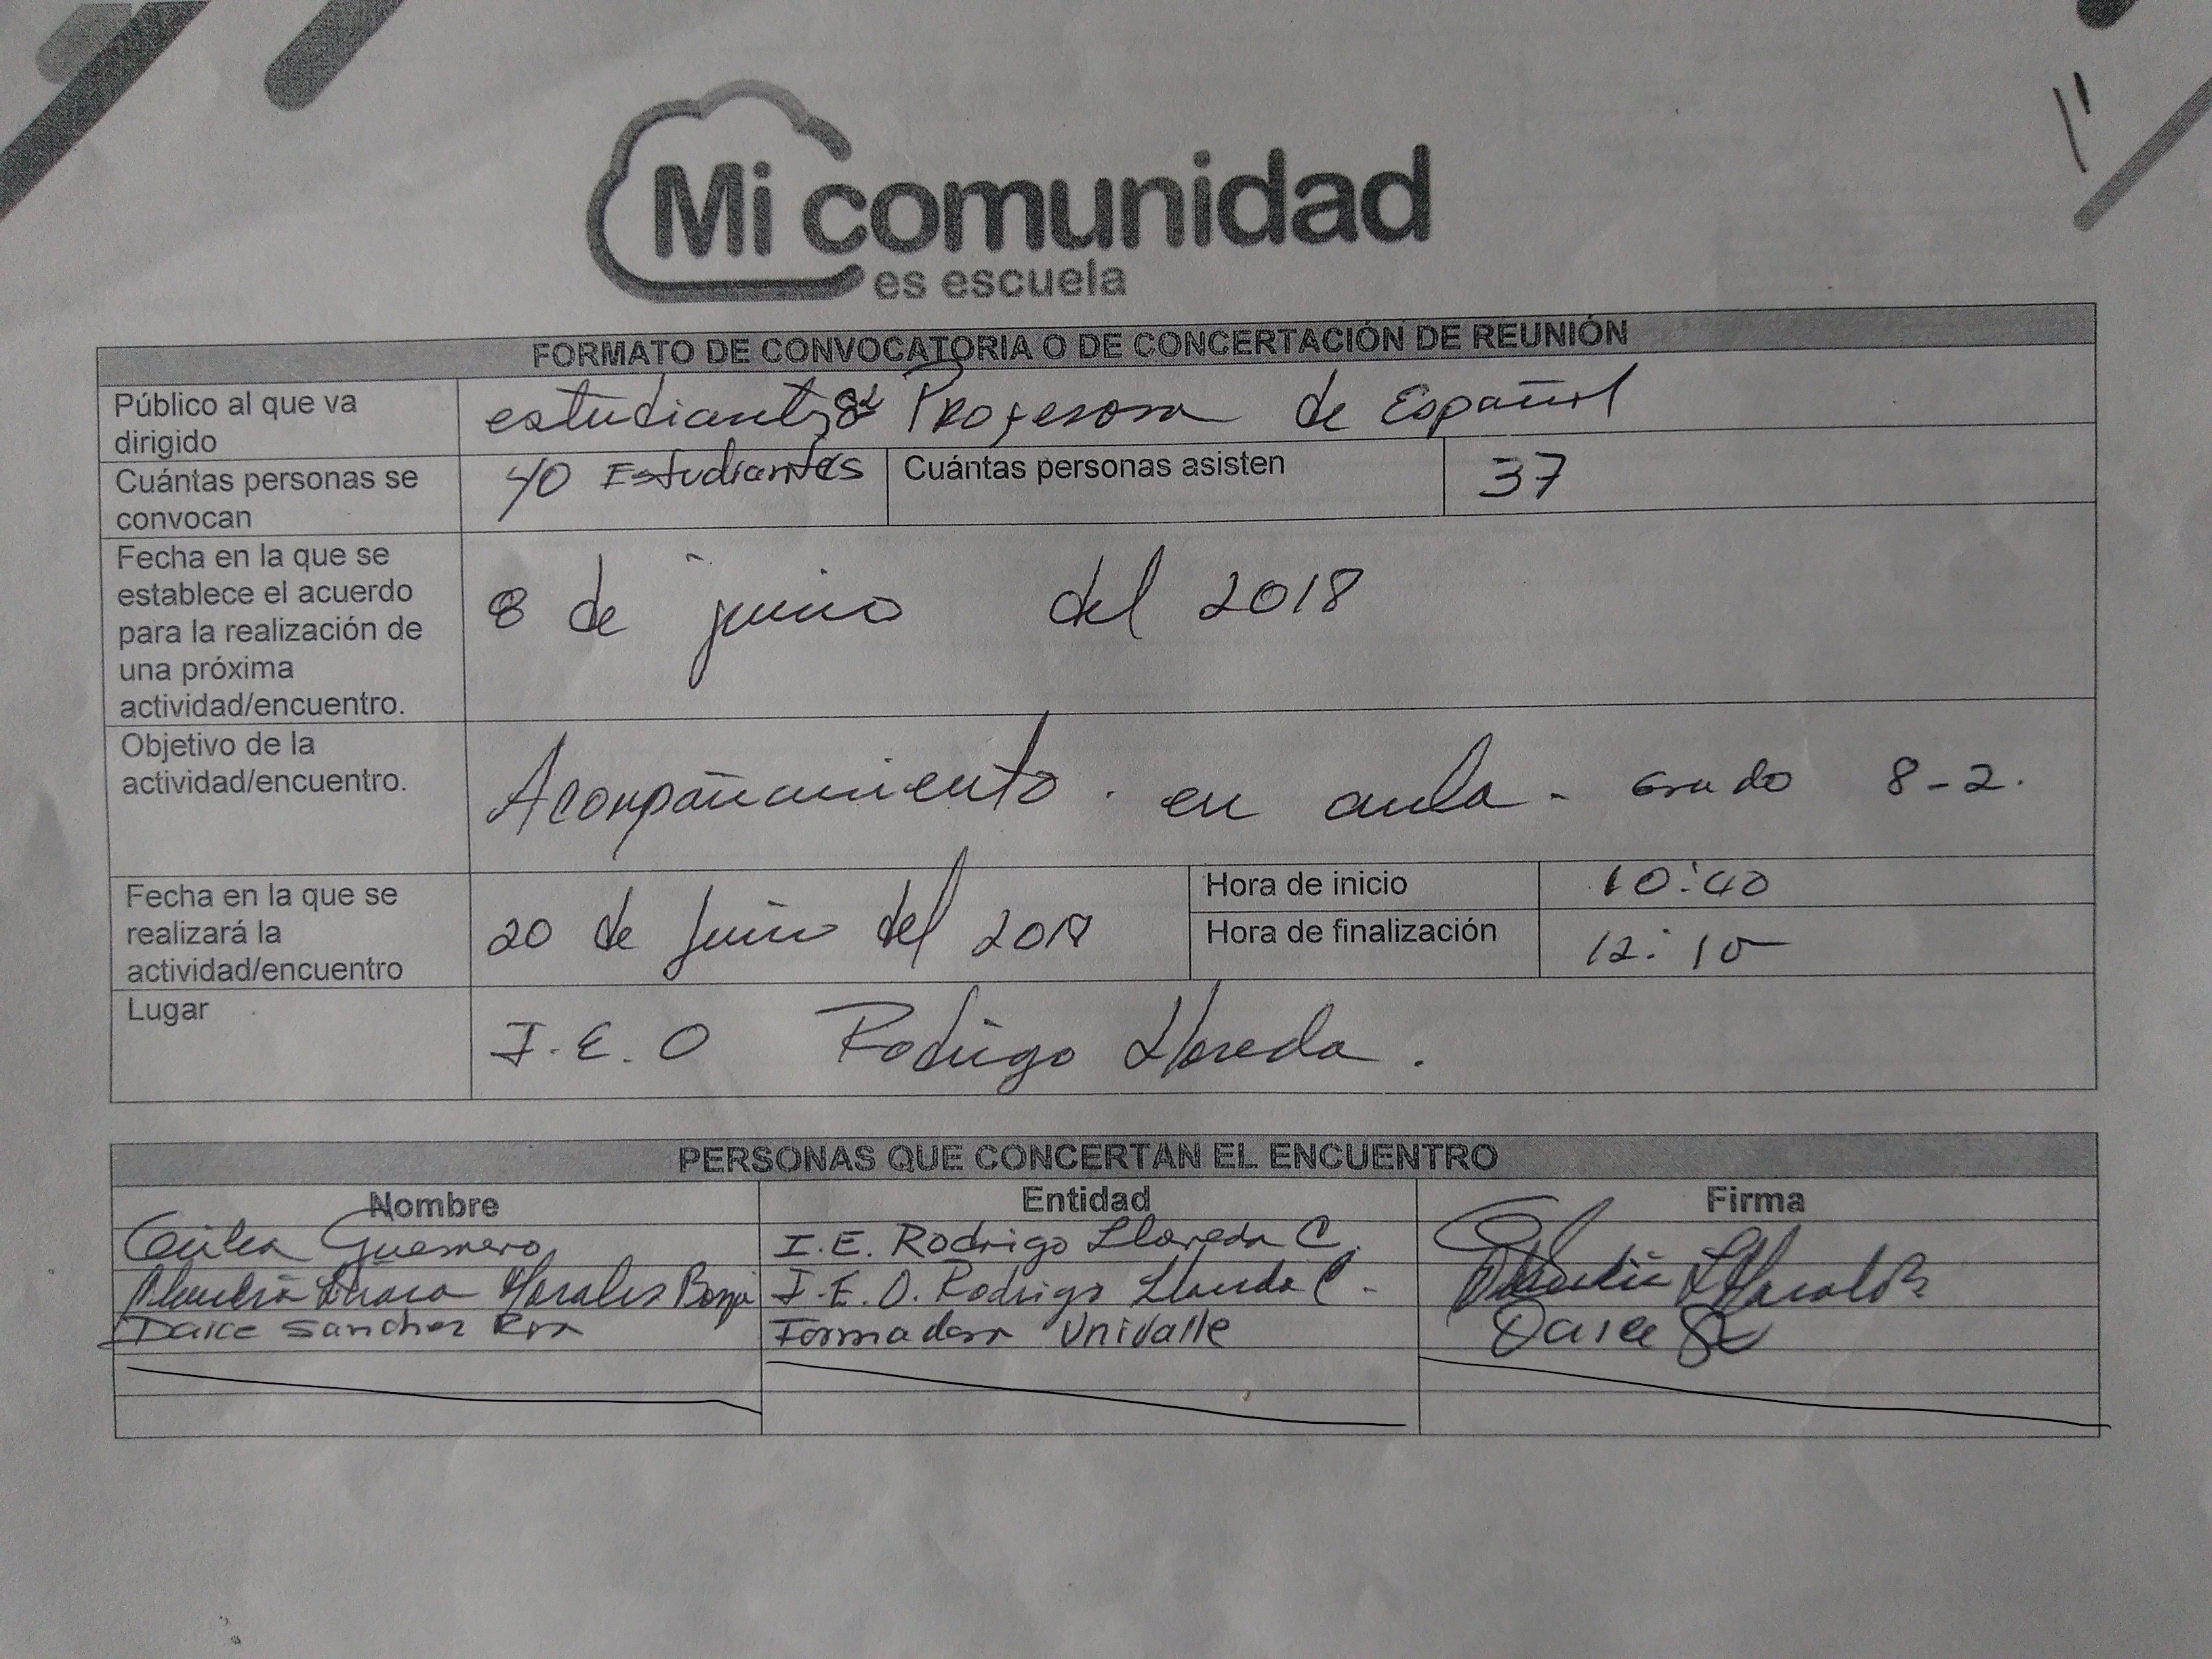 Mi comunidad
es escuela
FORMATO DE CONVOCATORIA O DE CONCERTACIÓN DE REUNIÓN
Público al que va
dirigido
Profesora de Español
Cuántas personas se
convocan
40 Estudiantes
Cuántas personas asisten
37
Fecha en la que se
establece el acuerdo
para la realización de
una próxima
actividad/encuentro.
8 de junio del 2018
Objetivo de la
actividad/encuentro.
Acompañamiento . en aula - Grado 8-2.
Fecha en la que se
realizará la
actividad/encuentro
20 de Junio del 2018
Hora de inicio
10:40
Hora de finalización
12:10
Lugar
I.E.O Rodrigo Lloreda .
PERSONAS QUE CONCERTAN EL ENCUENTRO
Nombre Entidad Firma
Guerrero I.E. Rodrigo Lloreda C.
Morales I.E.O. Rodrigo Lloreda C.
Daice Sanchez Formadora Univalle Daice